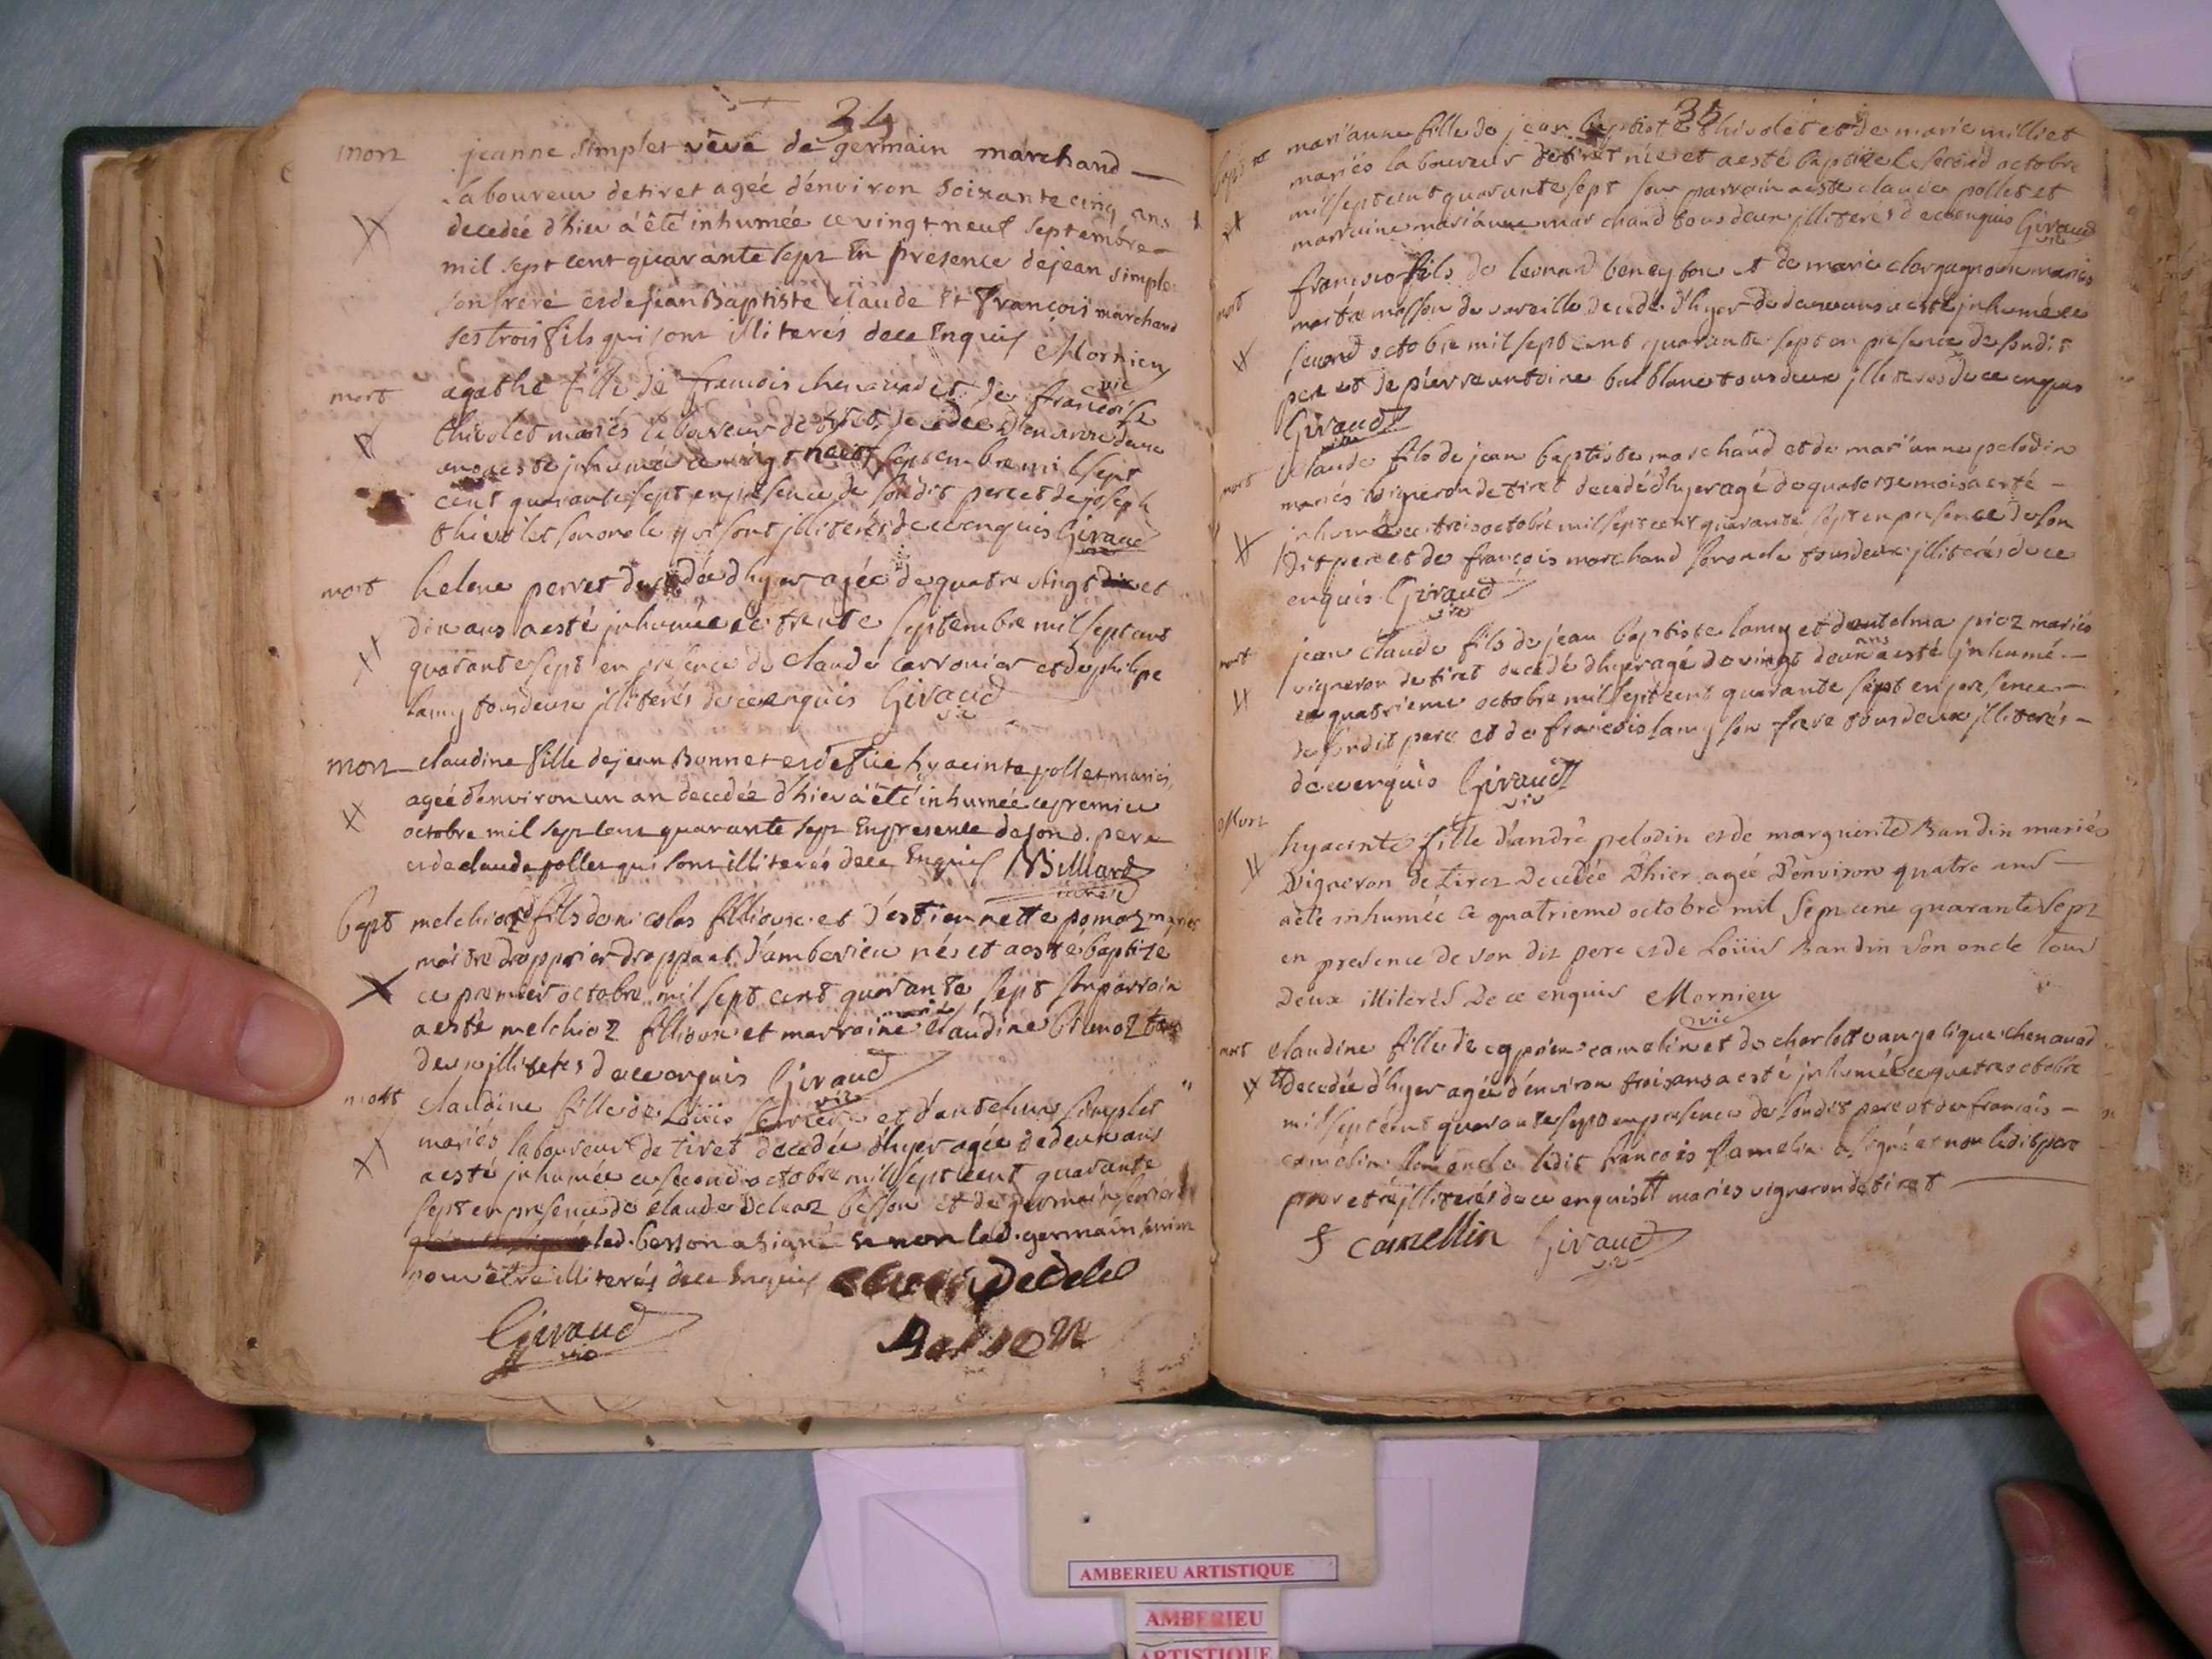 34
mort jeanne simplet veve de germain marchand
laboureur de tiret agée d'énviron soixante cinq ans
decedée d'hier á êté inhumée ce vingt neuf septembre
mil sept cent quarante sept En présence de jean simplet
son frère et de jean Baptiste claude Et François marchand
ses trois fils qui sont illiterés de ce Enquis Mornieu
vic
mort agathe fille de francois chenavard et de francoise
thivolet mariés laboureur de tiret decedée d'environ deux
ans a esté inhumée ce vingt neuf septembre mil sept
cent quarante sept en présence de son dit pere et de joseph
thivolet son oncle qui sont jlliterés de ce enquis Giraud
vic
mort helene perret decedée d'hyer agée de quatre vingt et
dix ans a esté jnhumée ce trente septembre mil sept cent
quarante sept en presence de claude carronier et de philipe
lamy tous deux jlliterés de ce enquis Giraud
vic
mort claudine fille de jean Bonnet et de hyacinte pollet mariés
agée d'environ un an decedée d'hier a été inhumée ce premier
octobre mil sept cent quarante sept En presence de son d. pere
et de claude pollet qui sont illiterés de ce Enquis Billiard
bapt melchior fils de nicolas fillioux et d'estiennette pomaz mariés
maitre drappier d'amberieu né et a esté baptize
ce premier octobre mil sept cent quarante sept son parrain
a esté melchior fillioux et marraine marie claudine tous
deux jlliterés de ce enquis Giraud
vic
mort claudine fille de Loüis et d'anthelme simplet
mariés laboureur de tiret decedée d'hyer agée de deux ans
a esté jnhumée ce second octobre mil sept cent quarante
sept en presence de claude besson et de germain
led. besson a signé et non led. germain
pour être illiterés de ce Enquis
Giraud Besson
vic
35
bapt marianne fille de jean baptiste thivolet et de marie milliet
mariés laboureur de tiret née et a esté baptizée le second octobre
mil sept cent quarante sept son parrain a esté claude pollet et
marraine marianne marchand tous deux jlliterés de ce enquis Giraud
vic
mort francois fils de leonard beney et de marie mariés
maitre masson de decedé d'hyer de deux ans a esté jnhumé ce
second octobre mil sept cent quarante sept en presence de son dit
pere et de pierre antoine tous deux jlliterés de ce enquis
Giraud
vic
mort claude fils de jean baptiste marchand et de marianne pelodin
mariés vigneron de tiret decedé d'hyer agé de quatorze mois a esté
jnhumé ce trois octobre mil sept cent quarante sept en presence de son
dit pere et de françois marchand son oncle tous deux jlliterés de ce
enquis Giraud
vic
mort jean claude fils de jean baptiste lamy et d'antelma mariés
vigneron de tiret decedé d'hyer agé de vingt deux ans a esté jnhumé
ce quatrieme octobre mil sept cent quarante sept en presence
de son dit pere et de francois lamy son frere tous deux jlliterés
de ce enquis Giraud
vic
Mort hyacinte fille d'andré pelodin et de marguerite Bandin mariés
Vigneron de tiret Decedée D'hier agée D'environ quatre ans
a eté inhumée ce quatrieme octobre mil Sept cent quarante Sept
en presence de son dit pere et de Loüis Bandin son oncle tous
Deux illiterés De ce enquis Mornieu
vic
mort claudine fille de ciprien camelin et de charlotte angelique chenavad
decedée d'hyer agée d'environ trois ans a esté jnhumée ce quatre octobre
mil sept cent quarante sept en presence de son dit pere et de francois
camelin son oncle ledit francois Camelin a signé et non ledit pere
pour etre jlliterés de ce enquis mariés vigneron de tiret
F camellin Giraud
vic
AMBERIEU ARTISTIQUE
AMBERIEU
ARTISTIQUE